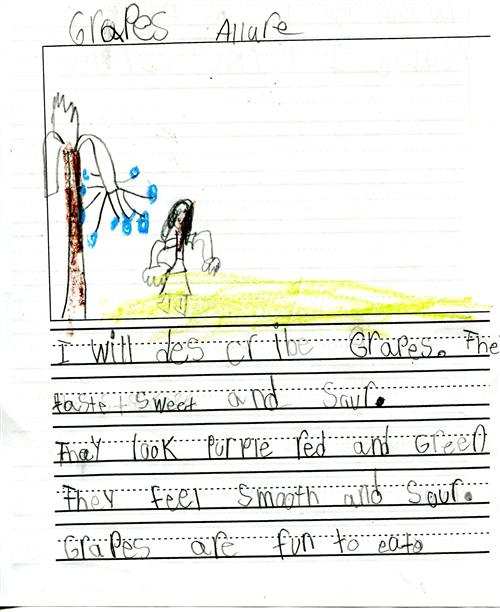 Grapes Allure
I will des cribe Grapes. The
taste sweet and Saur.
They look purple red and Green
They feel Smooth and Sour.
Grapes are fun to eat.